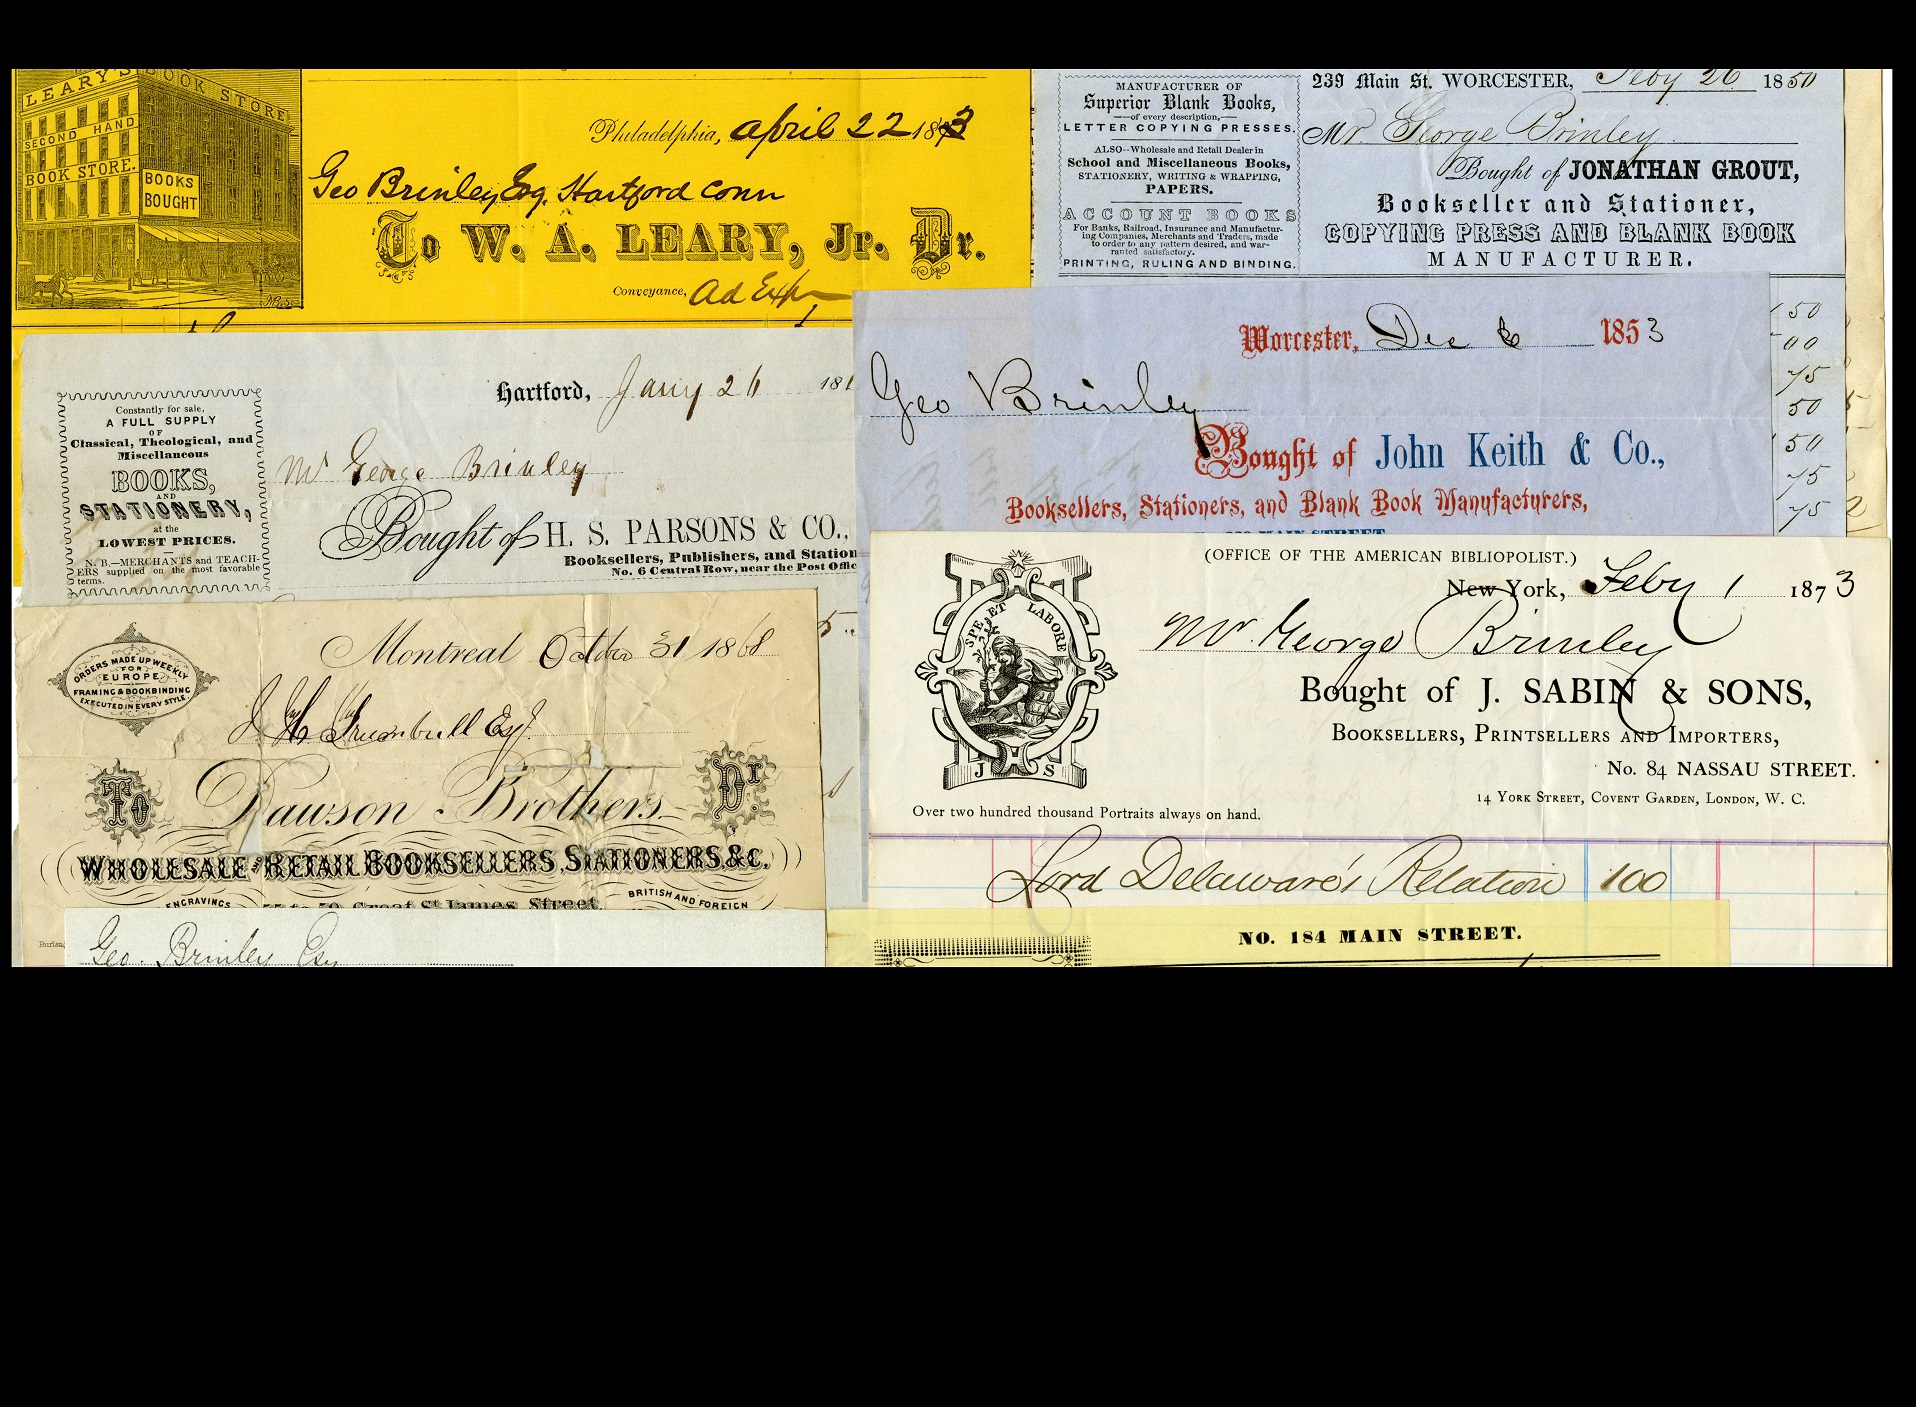 LEARY'S BOOK STORE
SECOND HAND
BOOK STORE.
BOOKS
BOUGHT
Philadelphia, April 22 1873
Geo Brinley Esq. Hartford Conn
To W. A. LEARY, Jr. Dr.
Conveyance, Ad Exp
MANUFACTURER OF
Superior Blank Books,
—of every description,—
LETTER COPYING PRESSES.
ALSO--Wholesale and Retail Dealer in
School and Miscellaneous Books,
STATIONERY, WRITING & WRAPPING,
PAPERS.
ACCOUNT BOOKS
For Banks, Railroad, Insurance and Manufactur-
ing Companies, Merchants and Traders, made
to order to any pattern desired, and war-
ranted satisfactory.
PRINTING, RULING AND BINDING.
239 Main St. WORCESTER, Feby 26 1850
Mr. George Brinley
Bought of JONATHAN GROUT,
Bookseller and Stationer,
COPYING PRESS AND BLANK BOOK
MANUFACTURER.
50
00
75
50
50
75
75
Hartford, Jany 26 18
Constantly for sale,
A FULL SUPPLY
OF
Classical, Theological, and
Miscellaneous
BOOKS,
AND
STATIONERY,
at the
LOWEST PRICES.
N. B.—MERCHANTS and TEACH-
ERS supplied on the most favorable
terms.
Mr George Brinley
Bought of H. S. PARSONS & CO.,
Booksellers, Publishers, and Station
No. 6 Central Row, near the Post Offic
Worcester, Dec 6 1853
Geo Brinley
Bought of John Keith & Co.,
Booksellers, Stationers, and Blank Book Manufacturers,
MAIN STREET
Montreal October 31 1868
ORDERS MADE UP WEEKLY
FOR
EUROPE
FRAMING & BOOKBINDING
EXECUTED IN EVERY STYLE.
J. H. Trumbull Esq.
To Dawson Brothers Dr
WHOLESALE AND RETAIL BOOKSELLERS, STATIONERS, &c.
ENGRAVINGS
55 to 59, Great St James Street,
BRITISH AND FOREIGN
Geo. Brinley Esq
(OFFICE OF THE AMERICAN BIBLIOPOLIST.)
New York, Feby 1 1873
SPE ET LABORE
J S
Mr. George Brinley
Bought of J. SABIN & SONS,
BOOKSELLERS, PRINTSELLERS AND IMPORTERS,
No. 84 NASSAU STREET.
14 YORK STREET, COVENT GARDEN, LONDON, W. C.
Over two hundred thousand Portraits always on hand.
Lord Delaware's Relation 100
NO. 184 MAIN STREET.